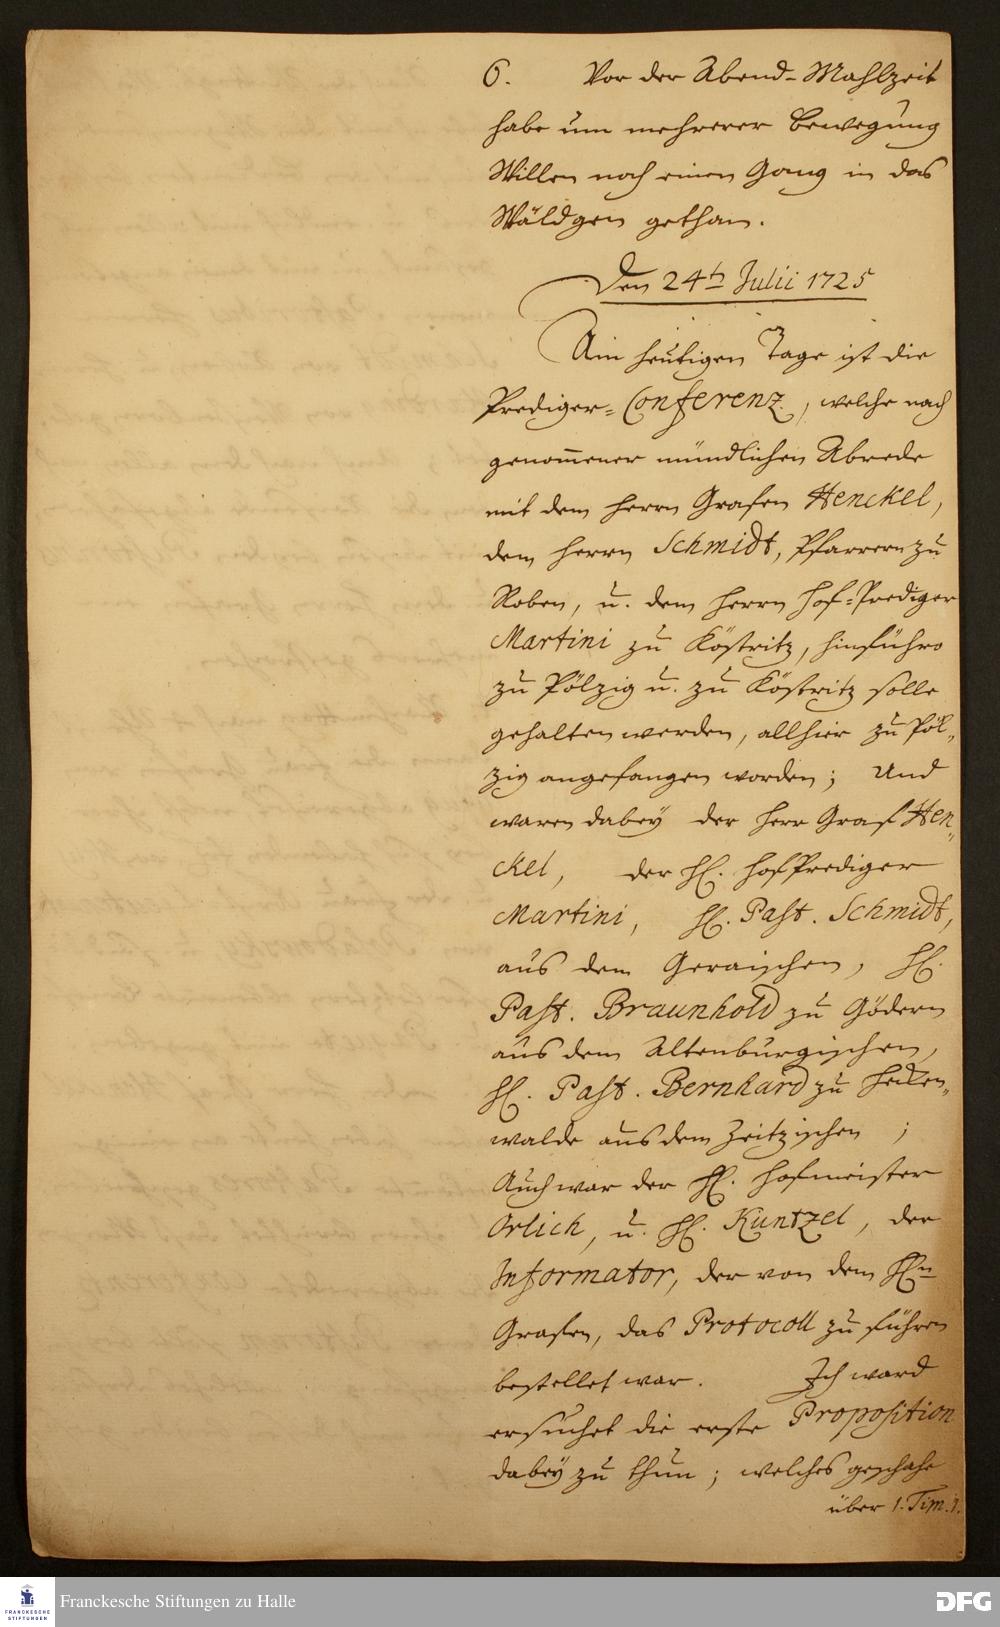 6. Vor der Abend-Mahlzeit
habe um mehrerer Bewegung
Willen noch einen Gang in das
Wäldgen gethan.
Den 24th Julii 1725
Am heutigen Tage ist die
Prediger-Conferenz, welche nach
genom̅ener mündlichen Abrede
mit dem Herrn Grafen Henckel,
dem Herrn Schmidt, Pfarrern zu
Roben, u. dem Herrn Hof-Prediger
Martini zu Köstritz, hinführo
zu Pölzig u. zu Köstritz solle
gehalten werden, allhier zu Pöl-
zig angefangen worden; Und
waren dabey der Herr Graf Hen-
ckel, der H. HofPrediger
Martini, H. Past. Schmidt,
aus dem Geraischen, H.
Past. Braunhold zu Gödern
aus dem Altenburgischen,
H. Past. Bernhard zu Heuken-
walde aus dem Zeitzischen ;
Auch war der H. Hofmeister
Orlich, u. H. Kuntzel, der
Informator, der von dem Hn
Grafen, das Protocoll zu führen
bestellet war. Ich ward
ersuchet die erste Proposition
dabey zu thun; welches geschahe
über 1. Tim. 1.
Franckesche Stiftungen zu Halle
FRANCKESCHE
STIFTUNGEN
DFG